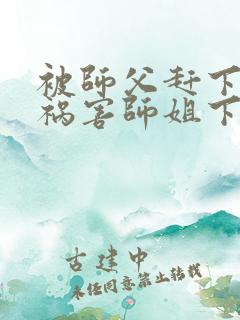 被師父赶下
祸害師姐下
古建中
未经同意禁止转载